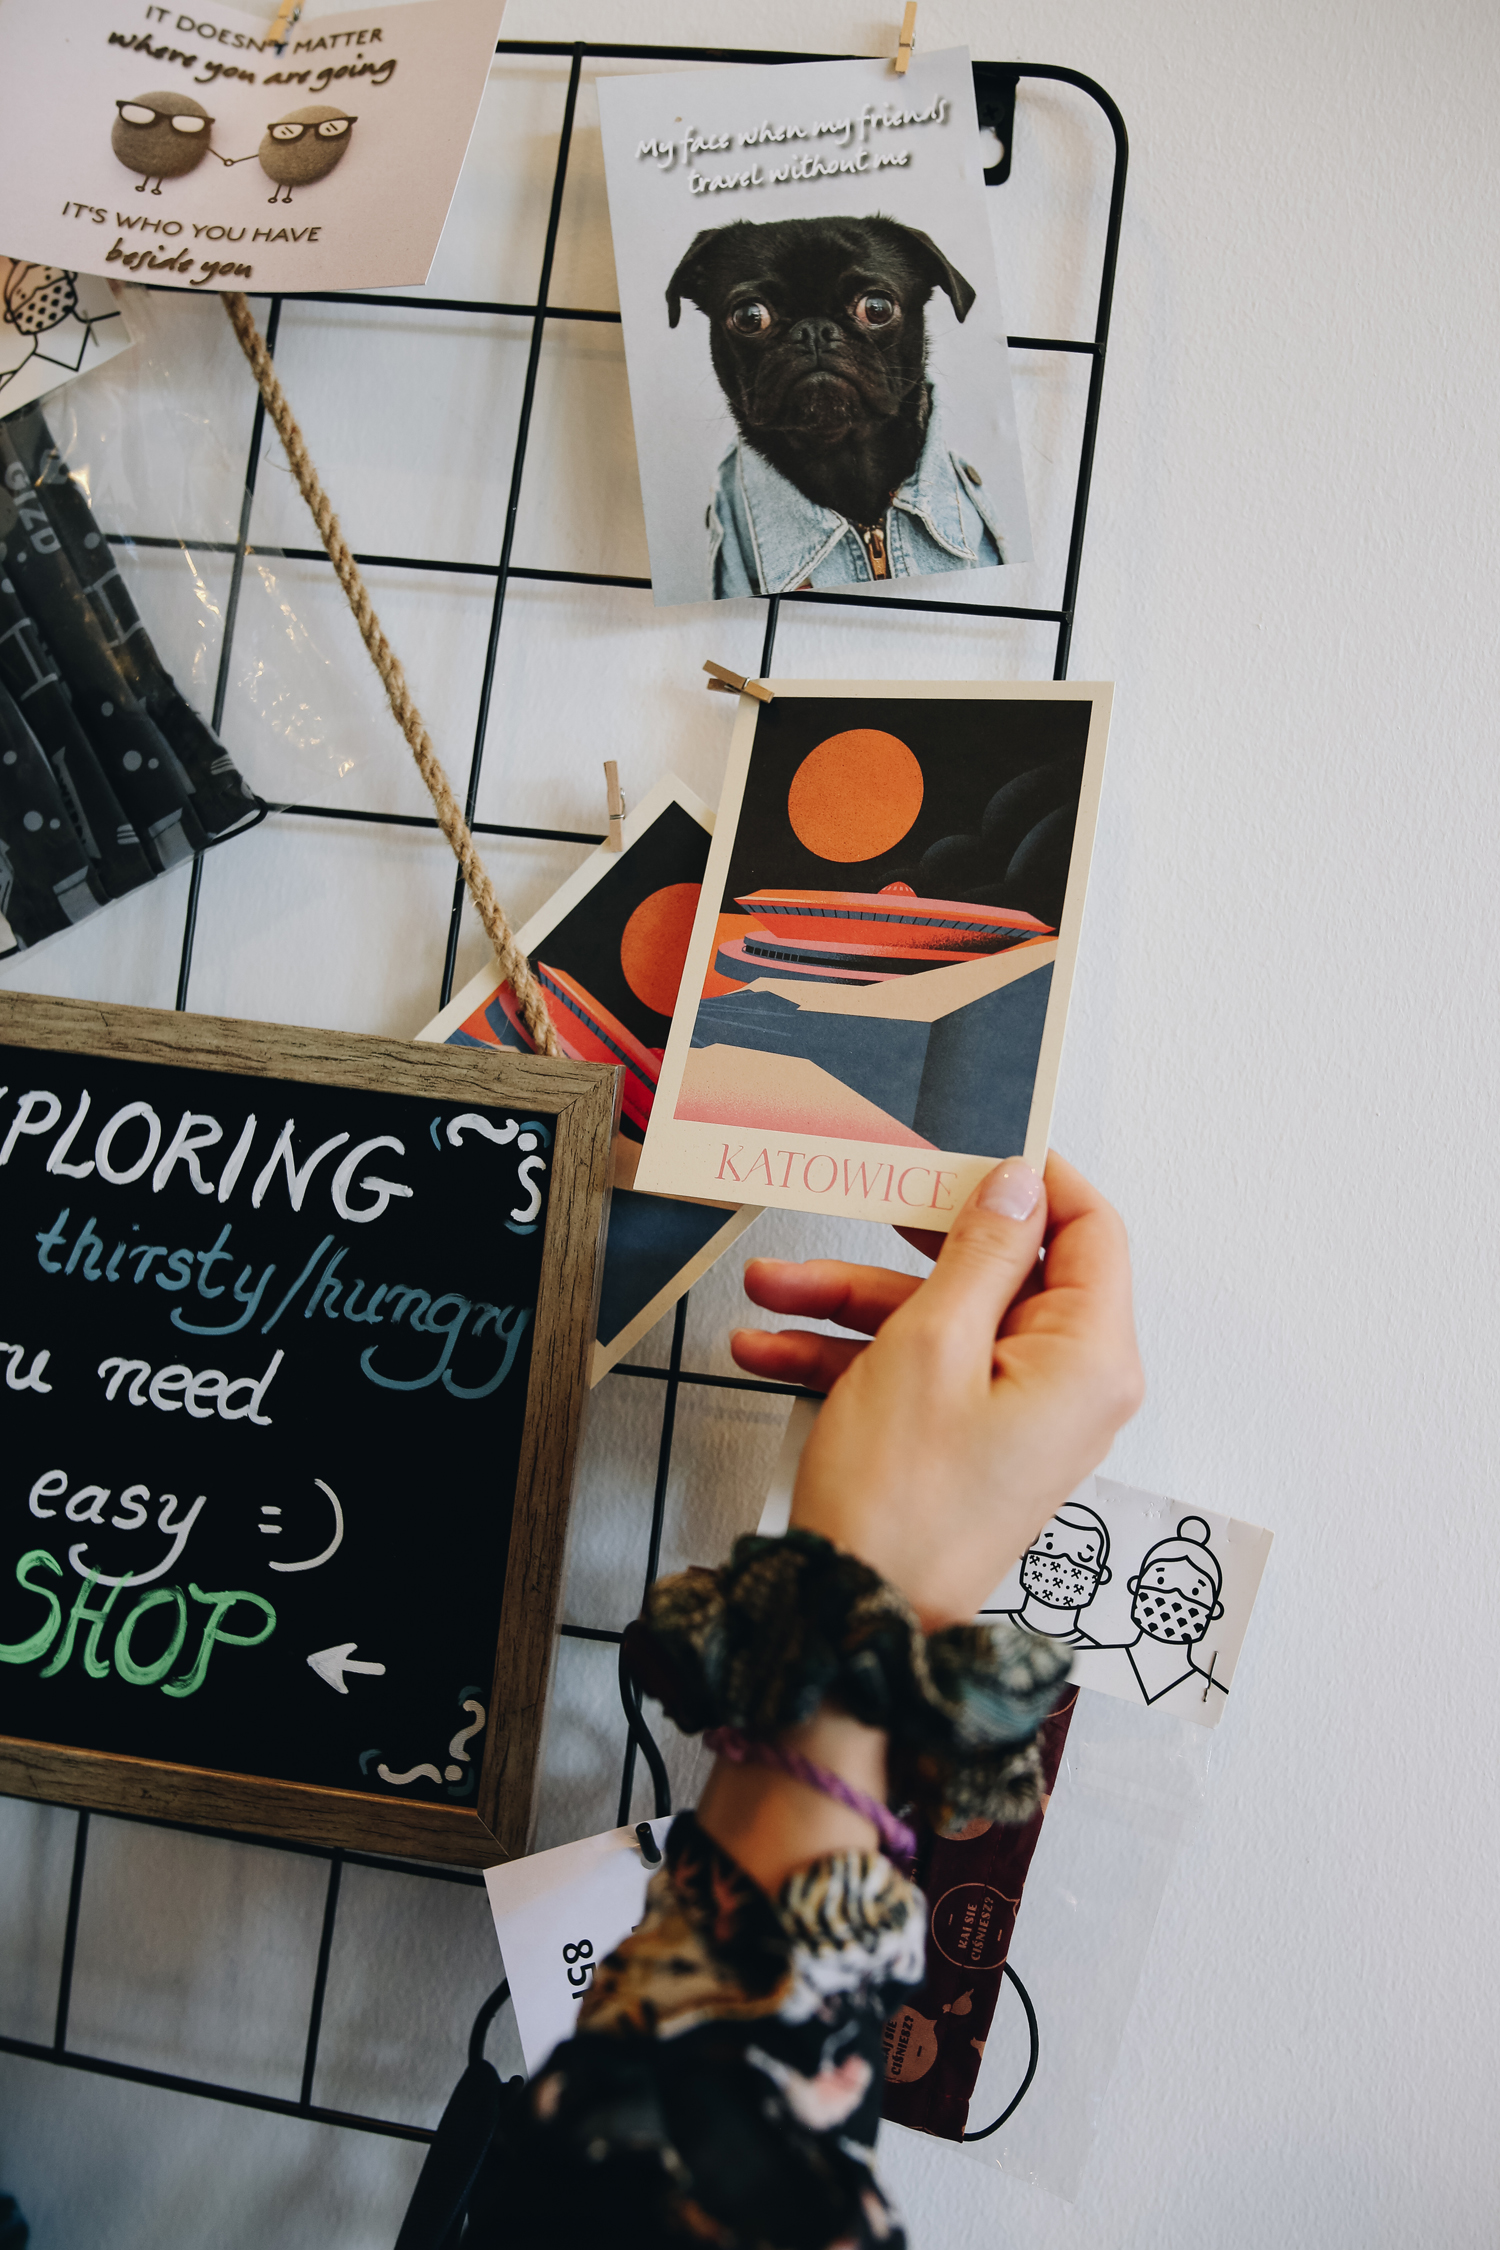 IT DOESN'T MATTER
where you are going
IT'S WHO YOU HAVE
beside you
My face when my friends
travel without me
KATOWICE
PLORING
thirsty/hungry
need
easy =)
SHOP
KAJ SIE
CIŚNIESZ?
CIŚNIESZ?